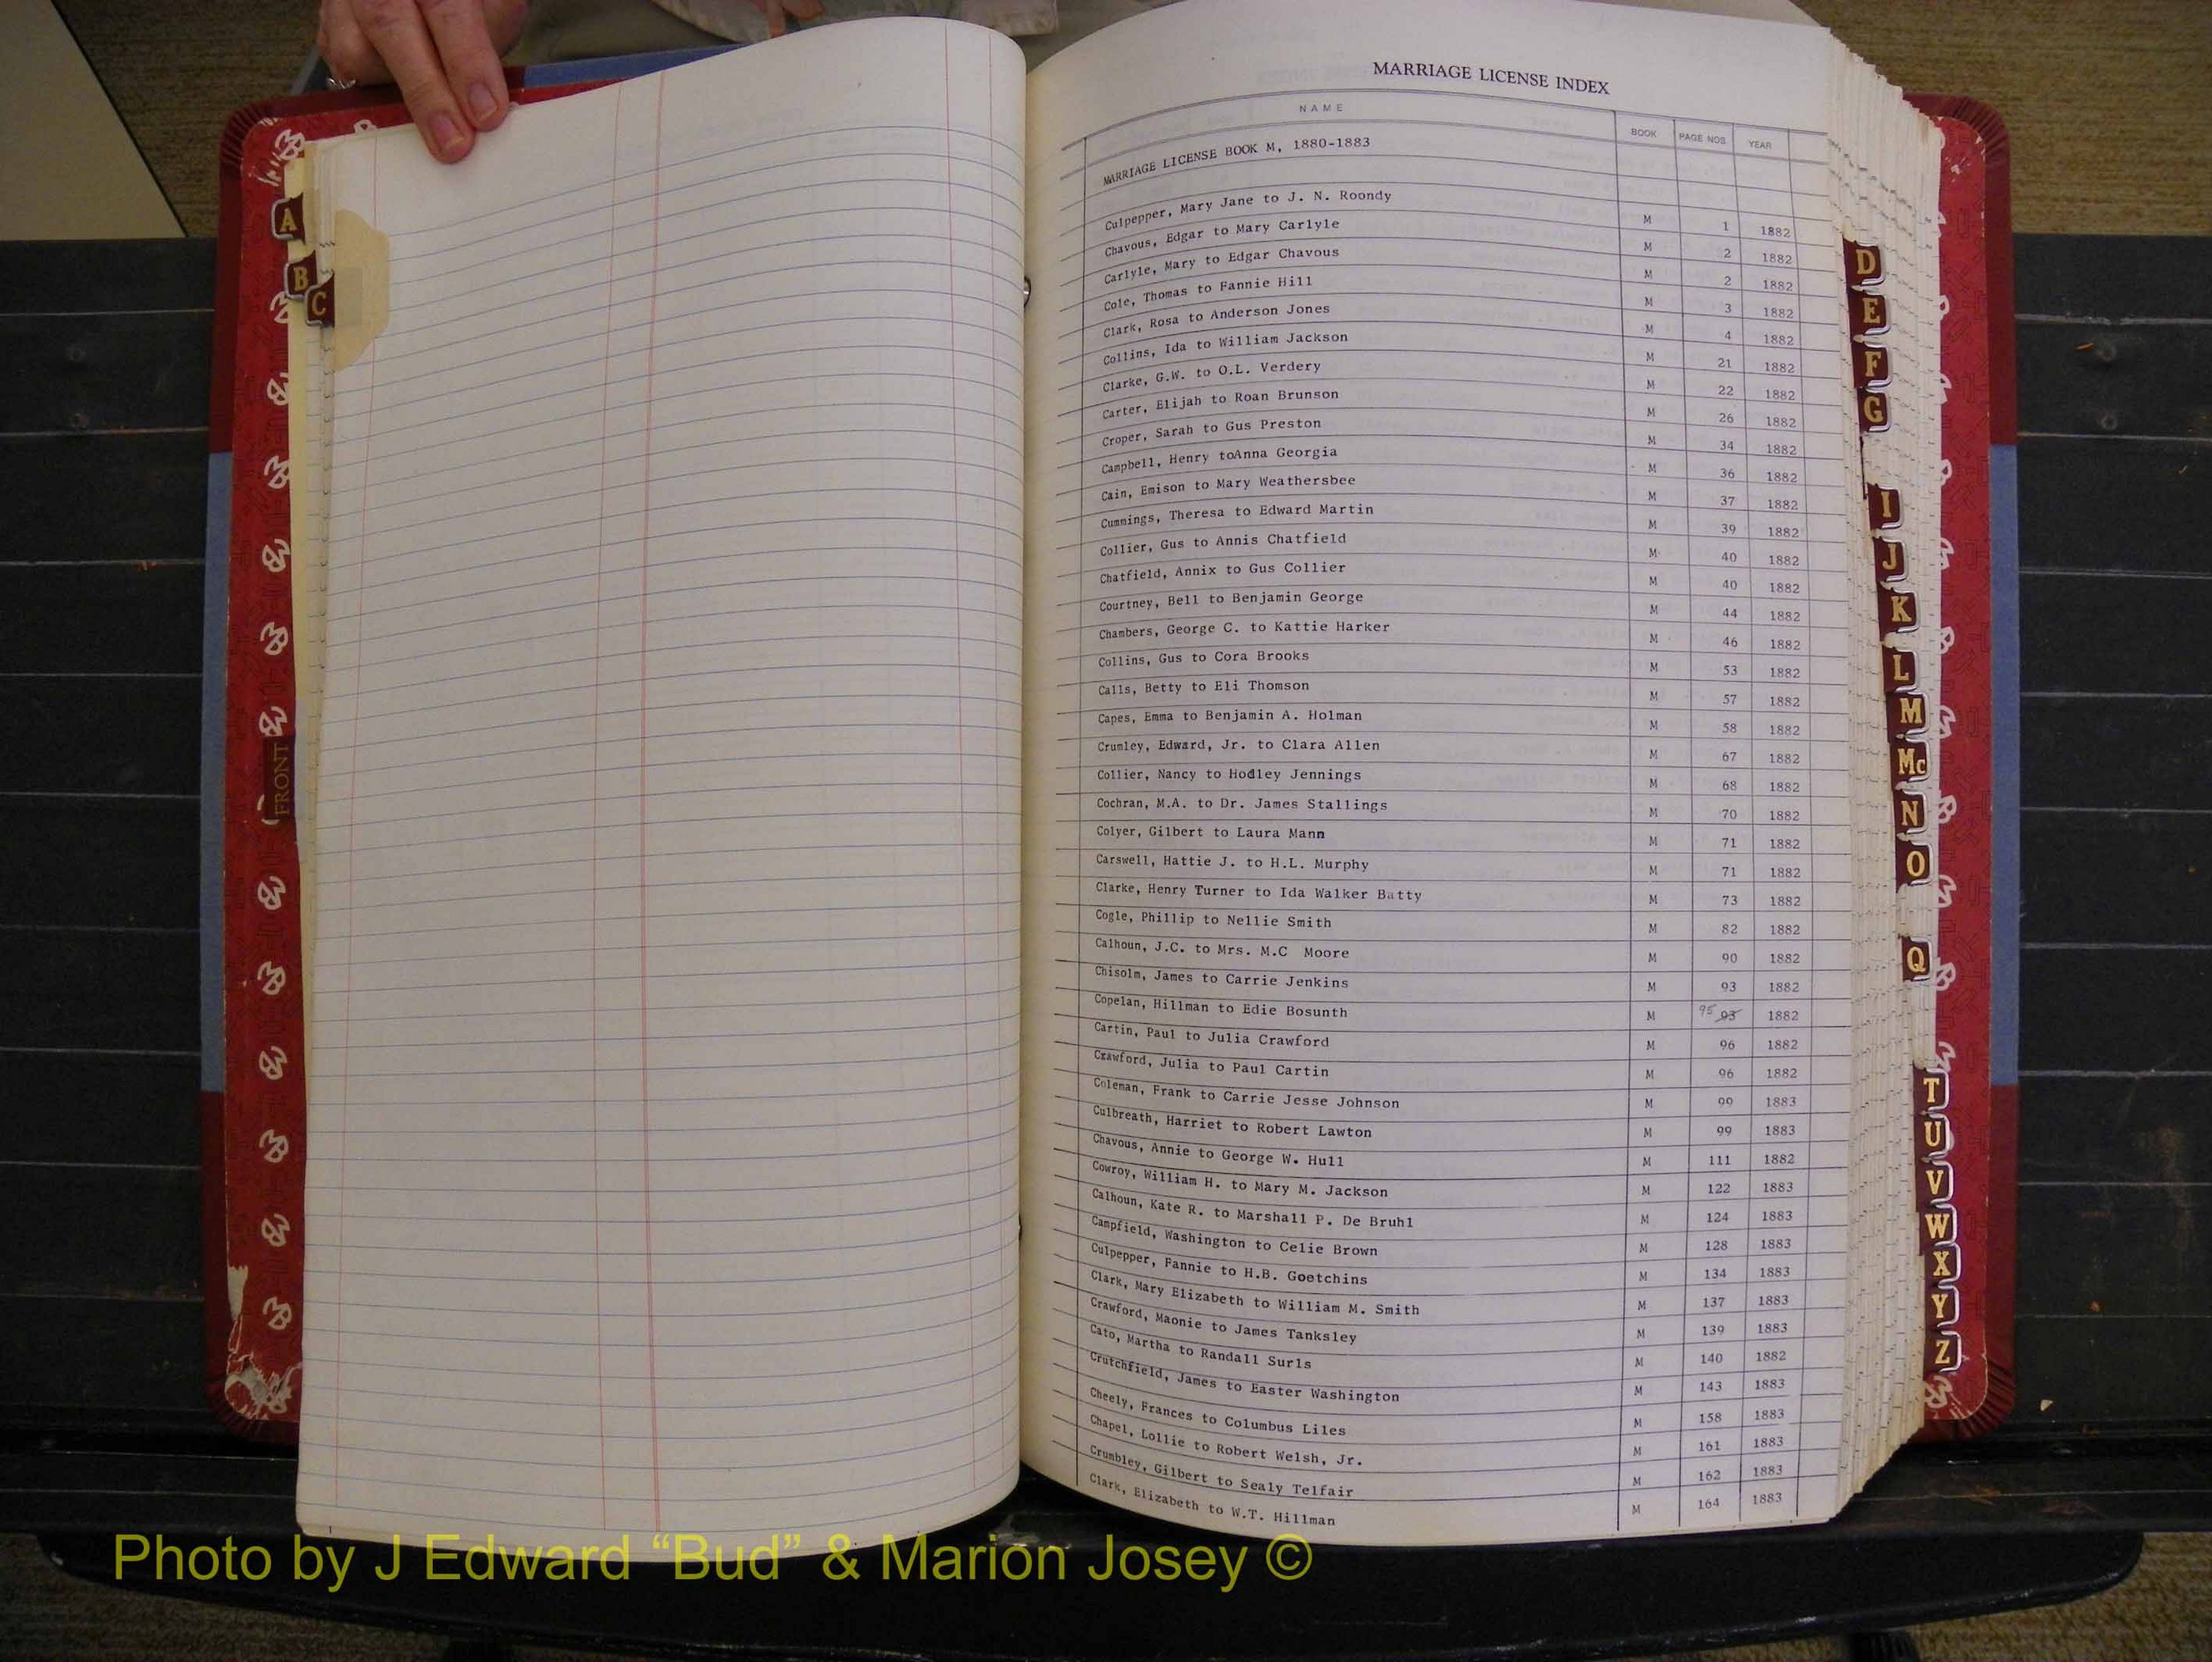 MARRIAGE LICENSE INDEX
NAME BOOK PAGE NOS. YEAR
MARRIAGE LICENSE BOOK M, 1880-1883
Culpepper, Mary Jane to J. N. Roondy M 1 1882
Chavous, Edgar to Mary Carlyle M 2 1882
Carlyle, Mary to Edgar Chavous M 2 1882
Cole, Thomas to Fannie Hill M 3 1882
Clark, Rosa to Anderson Jones M 4 1882
Collins, Ida to William Jackson M 21 1882
Clarke, G.W. to O.L. Verdery M 22 1882
Carter, Elijah to Roan Brunson M 26 1882
Croper, Sarah to Gus Preston M 34 1882
Campbell, Henry toAnna Georgia M 36 1882
Cain, Emison to Mary Weathersbee M 37 1882
Cummings, Theresa to Edward Martin M 39 1882
Collier, Gus to Annis Chatfield M 40 1882
Chatfield, Annix to Gus Collier M 40 1882
Courtney, Bell to Benjamin George M 44 1882
Chambers, George C. to Kattie Harker M 46 1882
Collins, Gus to Cora Brooks M 53 1882
Calls, Betty to Eli Thomson M 57 1882
Capes, Emma to Benjamin A. Holman M 58 1882
Crumley, Edward, Jr. to Clara Allen M 67 1882
Collier, Nancy to Hodley Jennings M 68 1882
Cochran, M.A. to Dr. James Stallings M 70 1882
Colyer, Gilbert to Laura Mann M 71 1882
Carswell, Hattie J. to H.L. Murphy M 71 1882
Clarke, Henry Turner to Ida Walker Batty M 73 1882
Cogle, Phillip to Nellie Smith M 82 1882
Calhoun, J.C. to Mrs. M.C Moore M 90 1882
Chisolm, James to Carrie Jenkins M 93 1882
Copelan, Hillman to Edie Bosunth M 95 93 1882
Cartin, Paul to Julia Crawford M 96 1882
Crawford, Julia to Paul Cartin M 96 1882
Coleman, Frank to Carrie Jesse Johnson M 99 1883
Culbreath, Harriet to Robert Lawton M 99 1883
Chavous, Annie to George W. Hull M 111 1882
Cowroy, William H. to Mary M. Jackson M 122 1883
Calhoun, Kate R. to Marshall P. De Bruhl M 124 1883
Campfield, Washington to Celie Brown M 128 1883
Culpepper, Fannie to H.B. Goetchins M 134 1883
Clark, Mary Elizabeth to William M. Smith M 137 1883
Crawford, Maonie to James Tanksley M 139 1883
Cato, Martha to Randall Surls M 140 1882
Crutchfield, James to Easter Washington M 143 1883
Cheely, Frances to Columbus Liles M 158 1883
Chapel, Lollie to Robert Welsh, Jr. M 161 1883
Crumbley, Gilbert to Sealy Telfair M 162 1883
Clark, Elizabeth to W.T. Hillman M 164 1883
A
B
C
FRONT
D
E
F
G
I
J
K
L
M
Mc
N
O
Q
T
U
V
W
X
Y
Z
Photo by J Edward “Bud” & Marion Josey ©